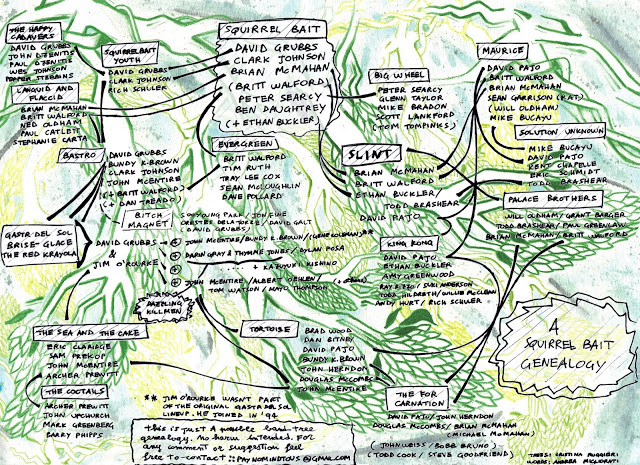 THE HAPPY
CADAVERS
DAVID GRUBBS
JOHN DZENITIS
PAUL DZENITIS
WES JOHNSON
PEPPER STEBBINS
SQUIRRELBAIT
YOUTH
DAVID GRUBBS
CLARK JOHNSON
RICH SCHULER
SQUIRREL BAIT
DAVID GRUBBS
CLARK JOHNSON
BRIAN McMAHAN
(BRITT WALFORD)
PETER SEARCY
BEN DAUGHTREY
(+ ETHAN BUCKLER)
BIG WHEEL
PETER SEARCY
GLENN TAYLOR
MIKE BRADON
SCOTT LANKFORD
(TOM TOMPINKS)
MAURICE
DAVID PAJO
BRITT WALFORD
BRIAN McMAHAN
SEAN GARRISON (KAT)
(WILL OLDHAM)
MIKE BUCAYU
SOLUTION UNKNOWN
MIKE BUCAYU
DAVID PAJO
KENT CHAPELLE
ERIC SCHMIDT
TODD BRASHEAR
LANGUID AND
FLACCID
BRIAN McMAHAN
BRITT WALFORD
NED OLDHAM
PAUL CATLETT
STEPHANIE CARTA
BASTRO
DAVID GRUBBS
BUNDY K.BROWN
CLARK JOHNSON
JOHN McENTIRE
(+ BRITT WALFORD)
(+ DAN TREADO)
EVERGREEN
BRITT WALFORD
TIM RUTH
TRAY LEE COX
SEAN McLOUGHLIN
DAVE POLLARD
SLINT
BRIAN McMAHAN
BRITT WALFORD
ETHAN BUCKLER/
TODD BRASHEAR
DAVID PAJO
PALACE BROTHERS
WILL OLDHAM/ GRANT BARGER
TODD BRASHEAR/ PAUL GREENLAW
BRIAN McMAHAN/BRITT WALFORD
BITCH
MAGNET
SOOYOUNG PARK/ JON FINE
ORESTES DELATORRE/ DAVID GALT
(DAVID GRUBBS)
GASTR DEL SOL
BRISE-GLACE
THE RED KRAYOLA
DAVID GRUBBS
&
JIM O'ROURKE
JOHN McENTIRE/BUNDY K.BROWN/(GENE COLEMAN)**
DARIN GRAY & THYMME JONES/DYLAN POSA
KAZUYUKI KISHINO
JOHN McENTIRE/ ALBERT OEHLEN/
TOM WATSON/ MAYO THOMPSON
DAZZLING
KILLMEN
KING KONG
DAVID PAJO
ETHAN BUCKLER
AMY GREENWOOD
RAY RIZZO/ SUKI ANDERSON
TODD HILDRETH/ WILLIE McCLEAN
ANDY HURT/ RICH SCHULER
THE SEA AND THE CAKE
ERIC CLARIDGE
SAM PREKOP
JOHN McENTIRE
ARCHER PREWITT
THE COCTAILS
ARCHER PREWITT
JOHN UPCHURCH
MARK GREENBERG
BARRY PHIPPS
TORTOISE
BRAD WOOD
DAN BITNEY
DAVID PAJO
BUNDY K.BROWN
JOHN HERNDON
DOUGLAS McCOMBS
JOHN McENTIRE
THE FOR
CARNATION
DAVID PAJO/ JOHN HERNDON
DOUGLAS McCOMBS/ BRIAN McMAHAN
(MICHAEL McMAHAN)
(JOHN WEISS/ BOBB BRUNO)
(TODD COOK/ STEVE GOODFRIEND)
A
SQUIRREL BAIT
GENEALOGY
** JIM O'ROURKE WASN'T PART
OF THE ORIGINAL GASTR DEL SOL
LINEUP. HE JOINED IN '94
this is just a possible band-tree
genealogy. no harm intended. For
any comment or suggestion feel
free to contact:: PAYNOMINDTOUS@GMAIL.COM
TREES: CRISTINA RUGGIERI
WORDS: ANDREA MIGLIORATI